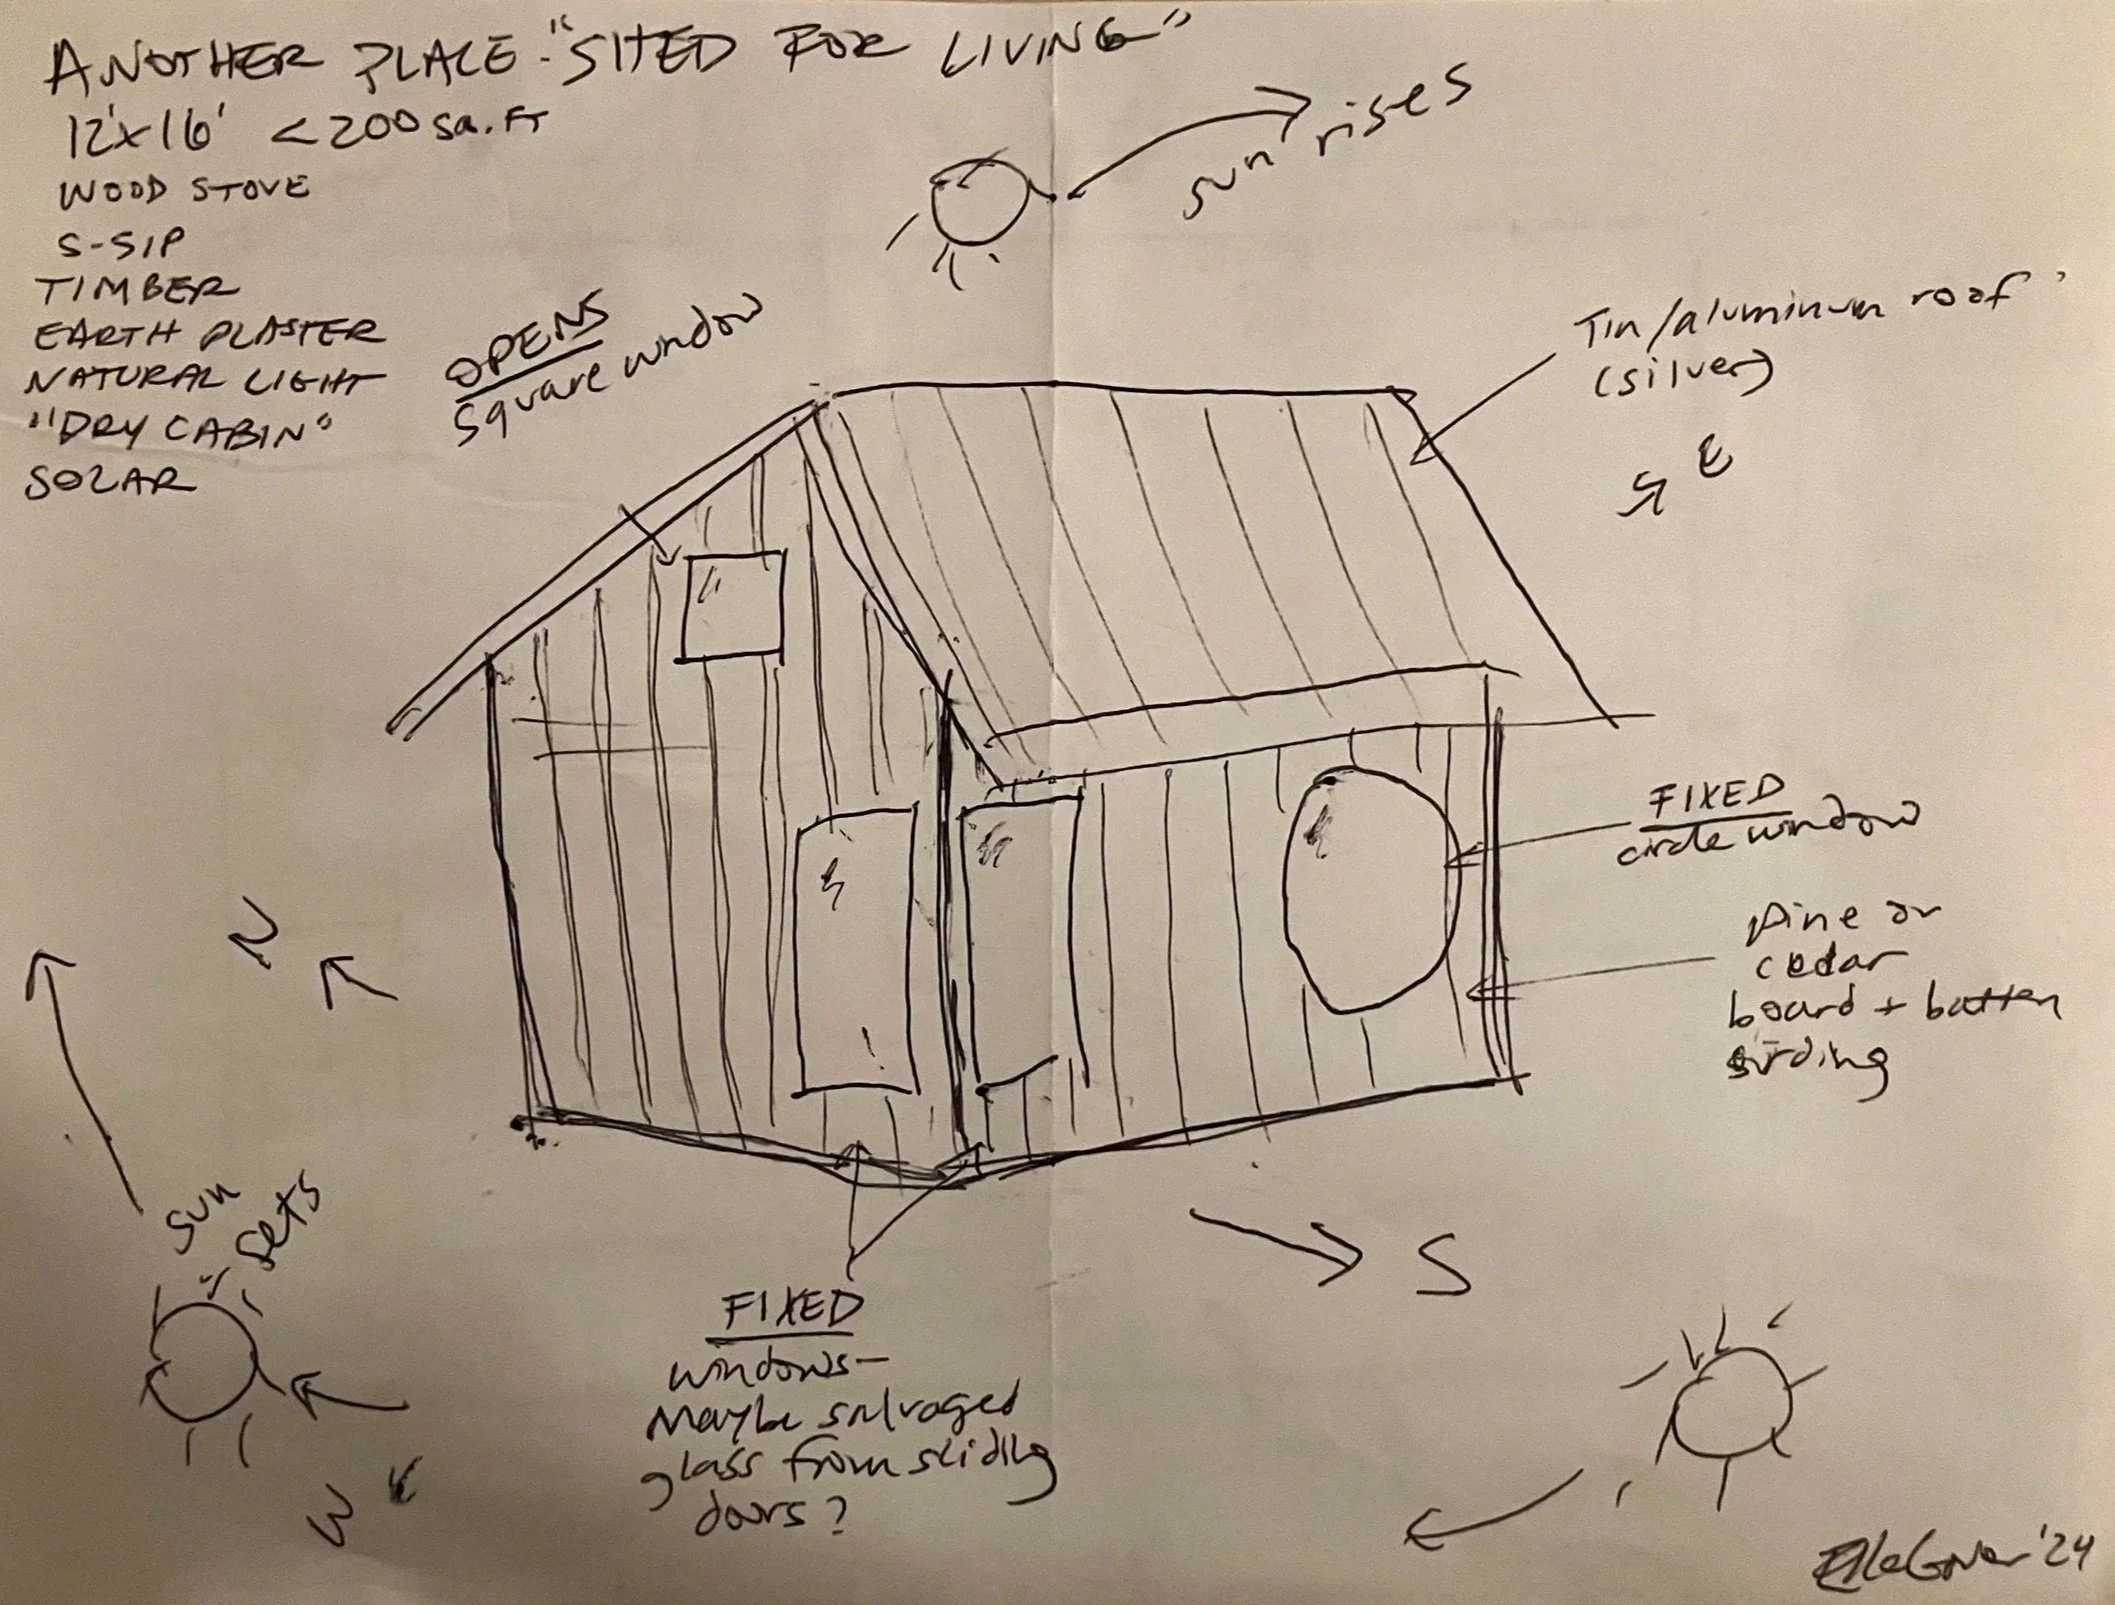 ANOTHER PLACE - "SITED FOR LIVING"
12'x16' <200 SQ. FT
WOOD STOVE
S-SIP
TIMBER
EARTH PLASTER
NATURAL LIGHT
"DRY CABIN"
SOLAR
sun rises
OPENS
square window
Tin/aluminum roof
(silver)
E
FIXED
circle window
pine or
cedar
board + batten
siding
N
sun
sets
S
W
FIXED
windows—
Maybe salvaged
glass from sliding
doors?
'24